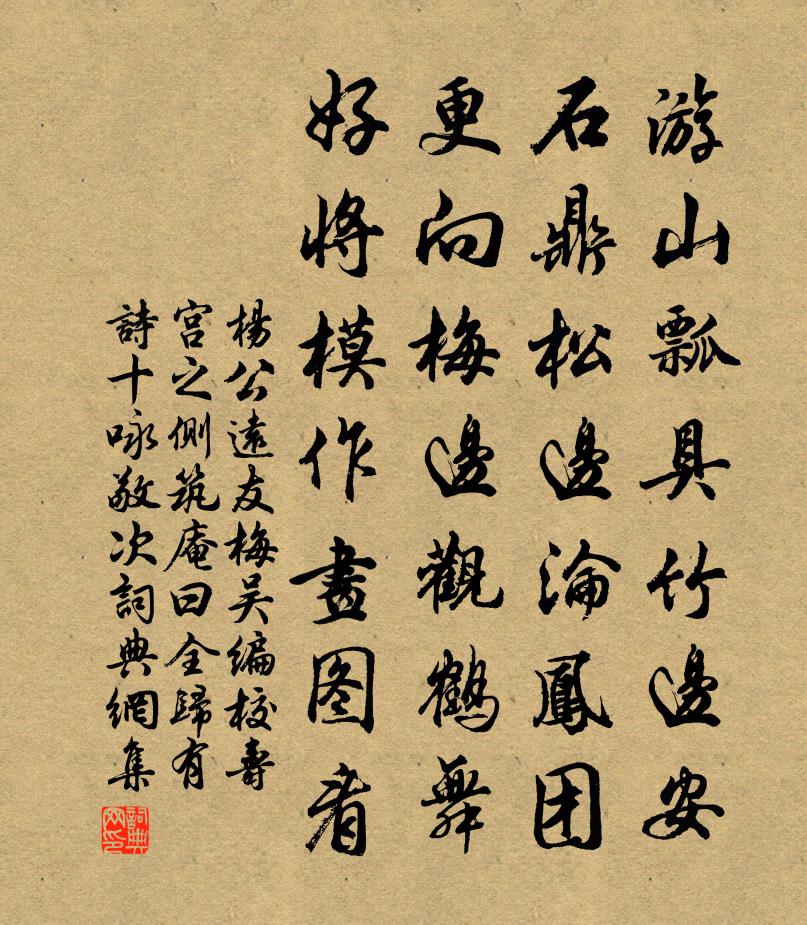 游山瓢具竹邊安
石鼎松邊淪鳳团
更向梅邊觀鶴舞
好將模作畫图看
楊公遠友梅吴編校壽
宫之側筑庵曰全歸有
詩十咏敬次詞典網集
詞典网印